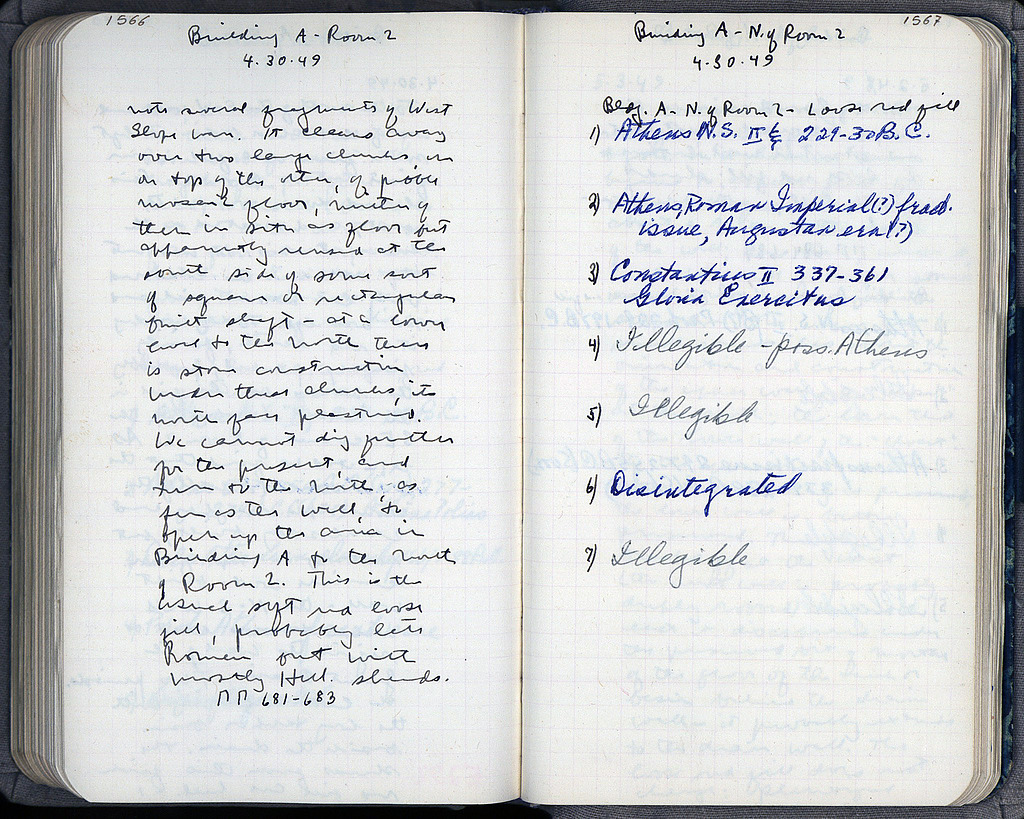 1566
Building A - Room 2
4.30.49
note several fragments of West
Slope ware. It cleans away
over two large chunks, one
on top of the other, of pebble
mosaic floor, neither of
them in situ as floor but
apparently reused at the
south side of some sort
of square or rectangular
built shaft - at a lower
level to the north there
is stone construction
under these chunks, its
north face plastered.
We cannot dig further
for the present and
turn to the north, as
far as the well, to
open up the area in
Building A to the north
of Room 2. This is the
usual soft red loose
fill, probably late
Roman but with
mostly Hell. sherds.
ΠΠ 681-683
1567
Building A - N. of Room 2
4.30.49
Bldg. A - N. of Room 2 - Loose red fill
1) Athens N.S. II 229-30 B.C.
2) Athens, Roman Imperial (?) fract.
issue, Augustan era (?)
3) Constantius II 337-361
Gloria Exercitus
4) Illegible - poss. Athens
5) Illegible
6) Disintegrated
7) Illegible